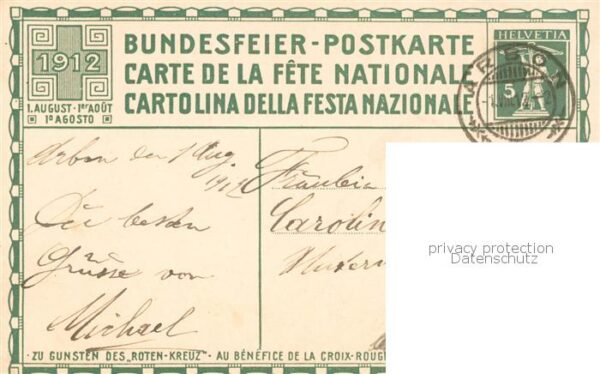 1912
1. AUGUST - 1ER AOÛT
1º AGOSTO
BUNDESFEIER-POSTKARTE
CARTE DE LA FÊTE NATIONALE
CARTOLINA DELLA FESTA NAZIONALE
HELVETIA
5
ARBON
Arbon den 1 Aug.
1912
Die besten
Grüsse von
Michael
Fräulein
Carolin
privacy protection
Datenschutz
ZU GUNSTEN DES „ROTEN-KREUZ" - AU BÉNÉFICE DE LA CROIX-ROUG